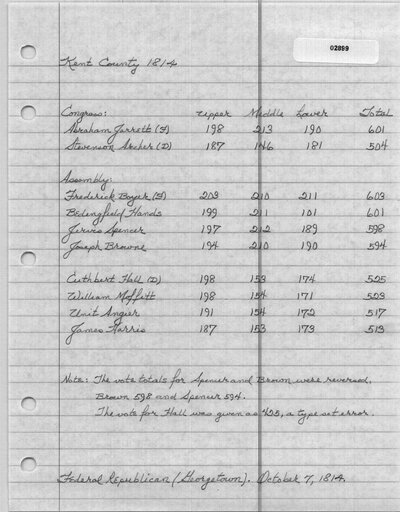 02899
Kent County 1814
Congress: Upper Middle Lower Total
Abraham Jarrett (F) 198 213 190 601
Stevenson Archer (D) 187 146 181 504
Assembly:
Frederick Boyer (F) 203 210 211 603
Bedingfield Hands 199 211 101 601
Jervis Spencer 197 212 189 598
Joseph Browne 194 210 190 594
Cuthbert Hall (D) 198 153 174 525
William Moffett 198 154 171 523
Unit Angier 191 154 172 517
James Harris 187 153 173 513
Note: The vote totals for Spencer and Brown were reversed.
Brown 598 and Spencer 594.
The vote for Hall was given as 425, a type set error.
Federal Republican (Georgetown). October 7, 1814.